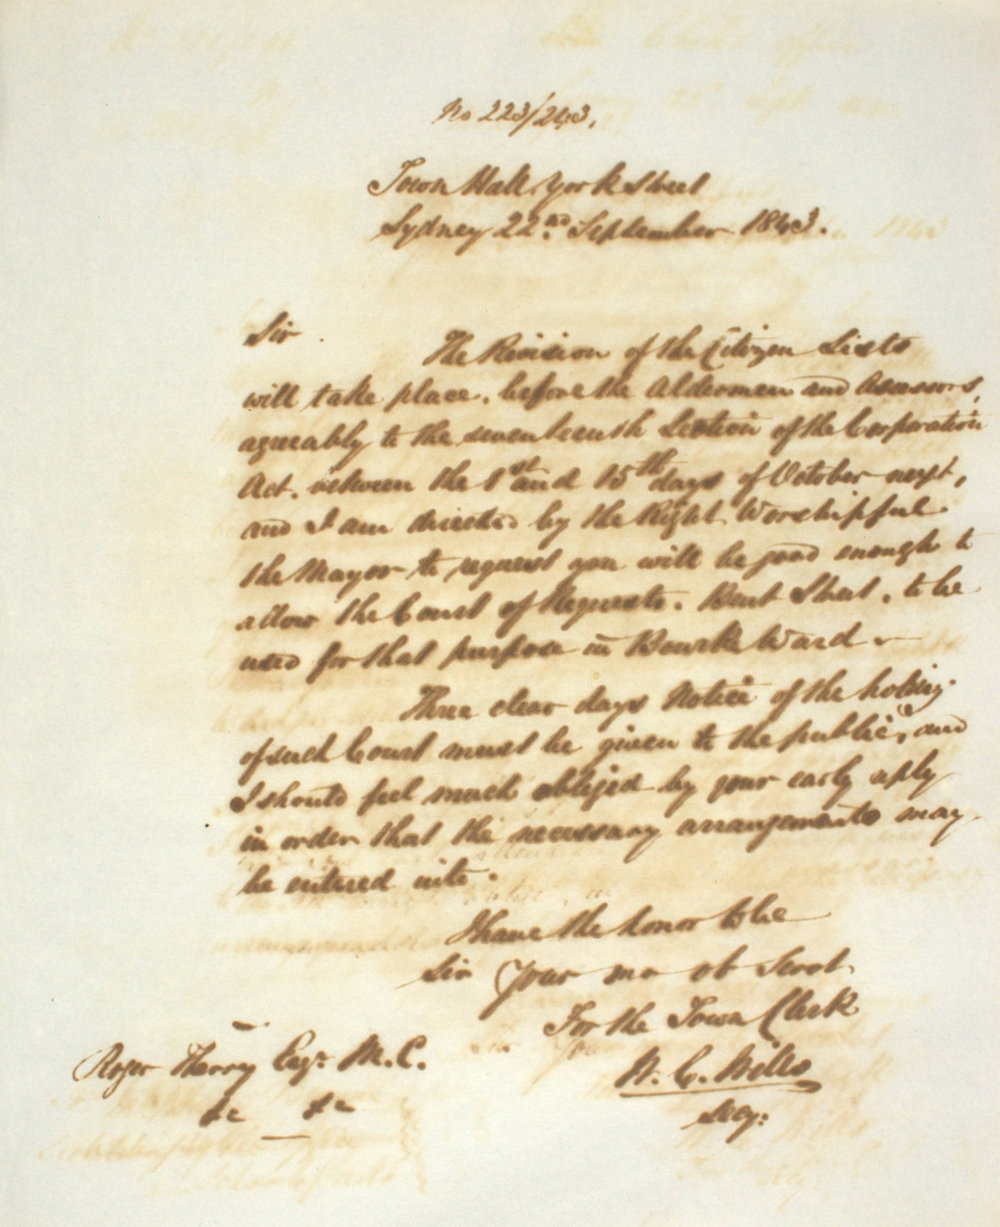 No 223/243.
Town Hall York Street
Sydney 22nd September 1843.
Sir
The Revision of the Citizen Lists
will take place, before the Aldermen and Assessors,
agreeably to the seventeenth Section of the Corporation
Act, between the 1st and 15th days of October next,
and I am directed by the Right Worshipful
the Mayor to request you will be good enough to
allow the Court of Requests, Bent Street, to be
used for that purpose in Bourke Ward
Three clear days Notice of the holding
of such Court must be given to the public, and
I should feel much obliged by your early reply
in order that the necessary arrangements may
be entered into.
I have the honor to be
Sir Your mo ob Servt
For the Town Clerk
W. C. Wills
Secy:
Roger Therry Esqr. M.C.
&c &c